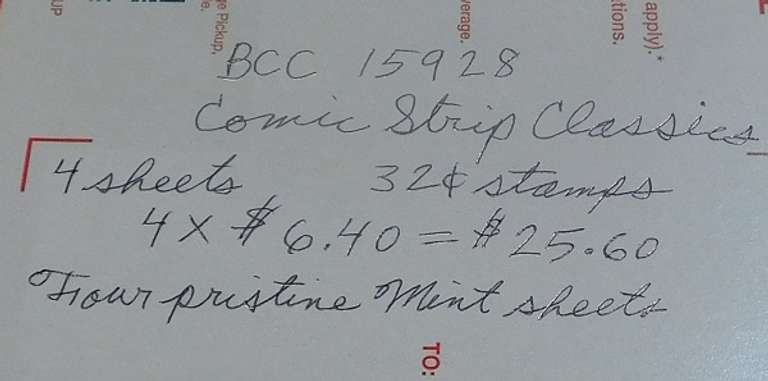 BCC 15928
Comic Strip Classics
4 sheets 32¢ stamps
4 x $6.40 = $25.60
Four pristine Mint sheets
TO:
apply).*
tions.
verage.
e Pickup,
e.
UP